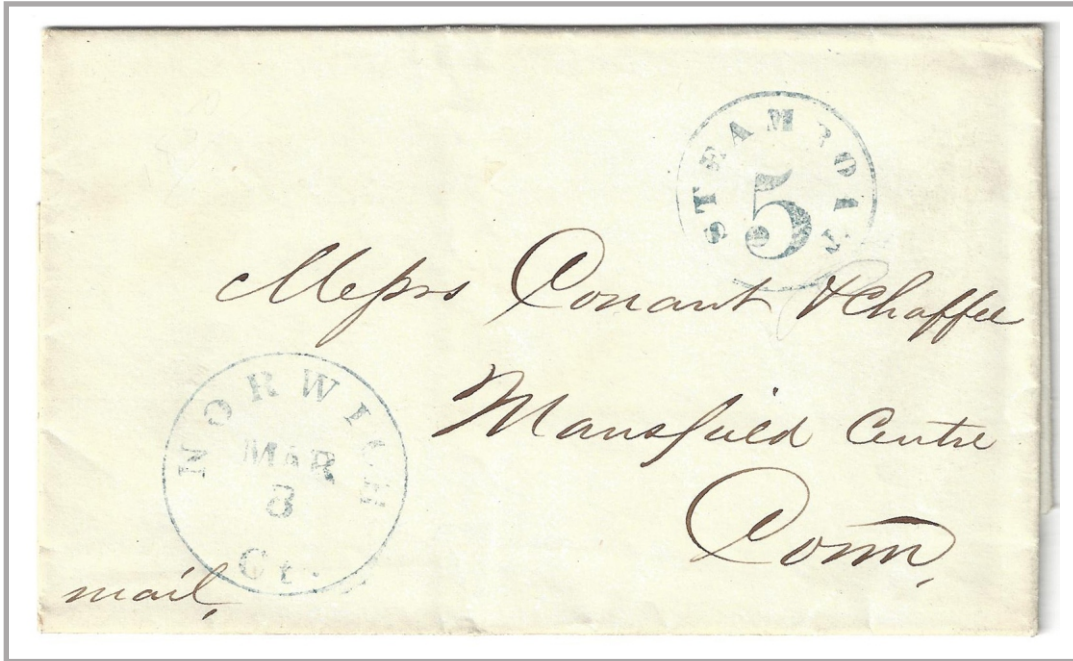 STEAMBOAT
5
Messrs Conant & Chaffee
Mansfield Centre
Conn.
NORWICH
MAR
8
Ct.
mail,